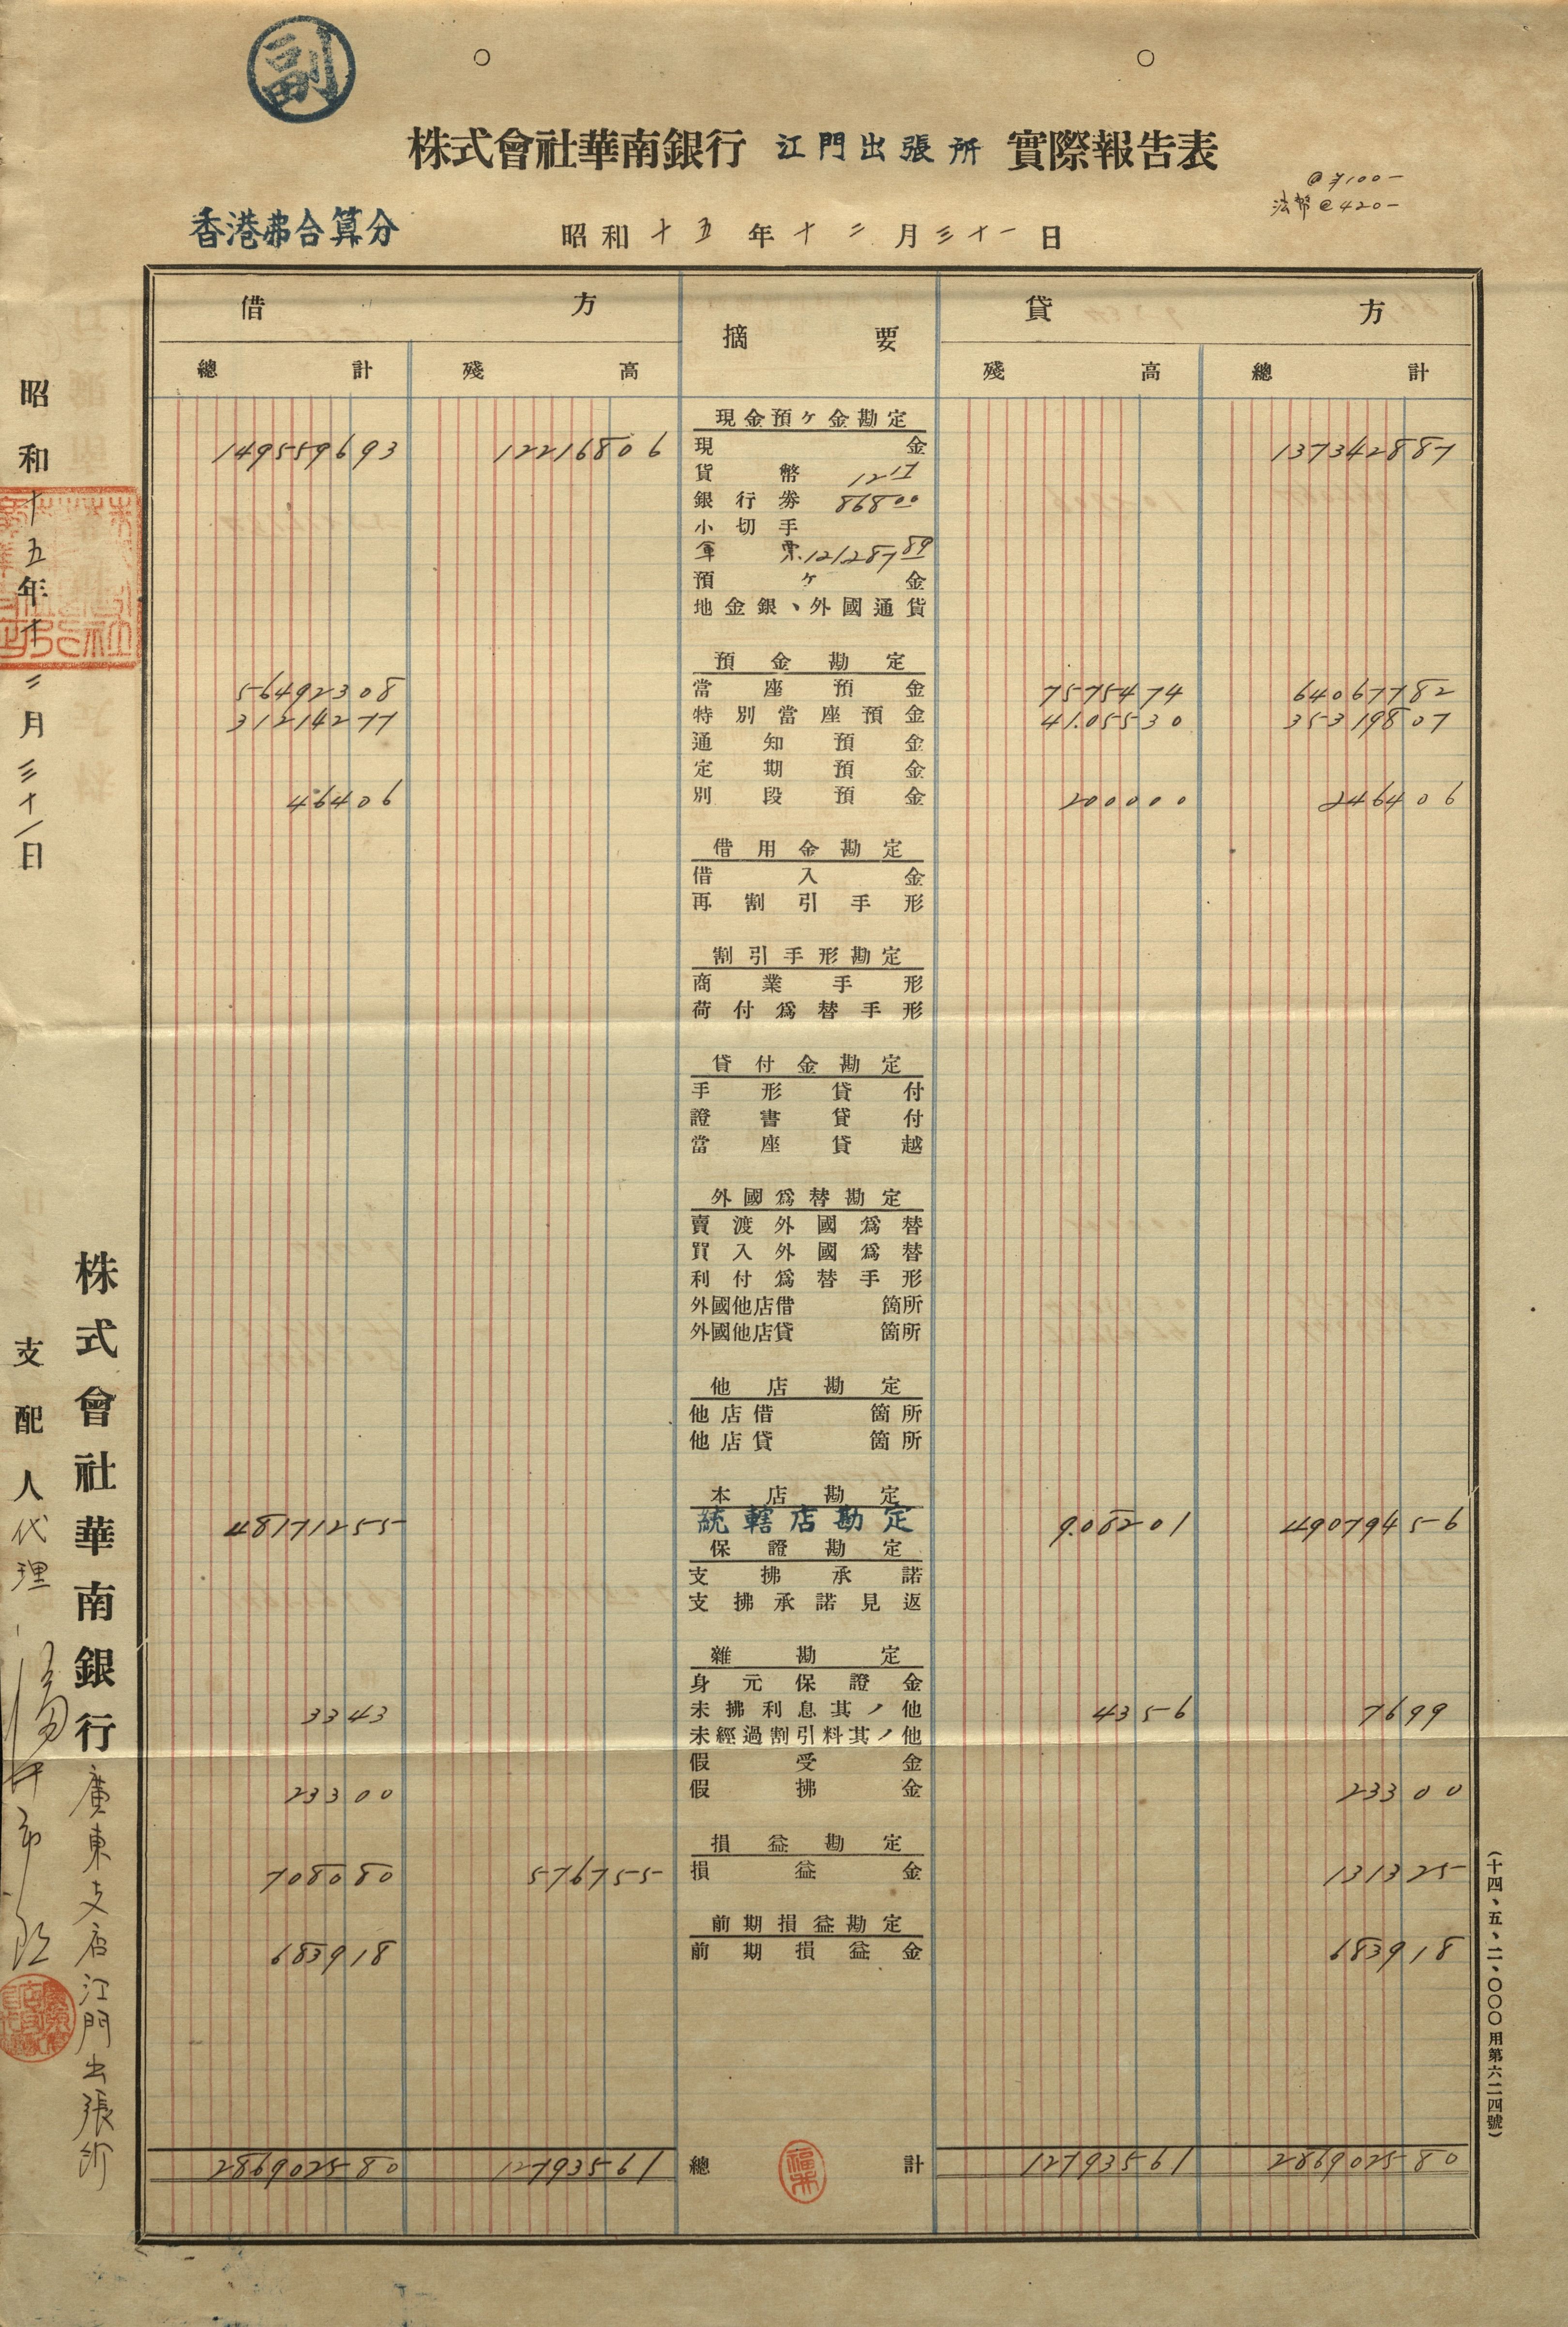 副
株式會社華南銀行 江門出張所 實際報告表
@¥100-
法幣@420-
香港弗合算分
昭和十五年十二月三十一日
借方 摘要 貸方
總計 殘高 殘高 總計
現金預ケ金勘定
149559693 12216806 現金 137342887
貨幣 12 17
銀行券 868 00
小切手
軍票 121287 89
預ケ金
地金銀、外國通貨
預金勘定
56492308 當座預金 7575474 64067782
31214277 特別當座預金 41.05530 35319807
通知預金
定期預金
46406 別段預金 200000 246406
借用金勘定
借入金
再割引手形
割引手形勘定
商業手形
荷付爲替手形
貸付金勘定
手形貸付
證書貸付
當座貸越
外國爲替勘定
賣渡外國爲替
買入外國爲替
利付爲替手形
外國他店借 箇所
外國他店貸 箇所
他店勘定
他店借 箇所
他店貸 箇所
本店勘定
48171255 統轄店勘定 9.08201 49079456
保證勘定
支拂承諾
支拂承諾見返
雜勘定
身元保證金
3343 未拂利息其ノ他 4356 7699
未經過割引料其ノ他
假受金
23300 假拂金 23300
損益勘定
708080 576755 損益金 131325
前期損益勘定
683918 前期損益金 683918
286902580 12793561 總計 12793561 286902580
福井
(十四、五、二、〇〇〇用第六二四號)
昭和十五年十二月三十一日
株式會社華南銀行廣東支店江門出張所
支配人代理